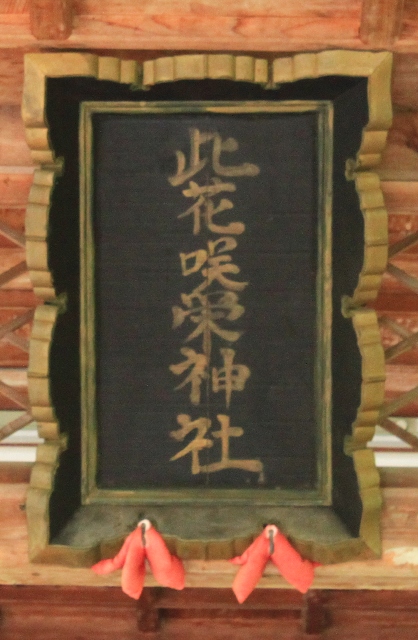 此花咲栄神社